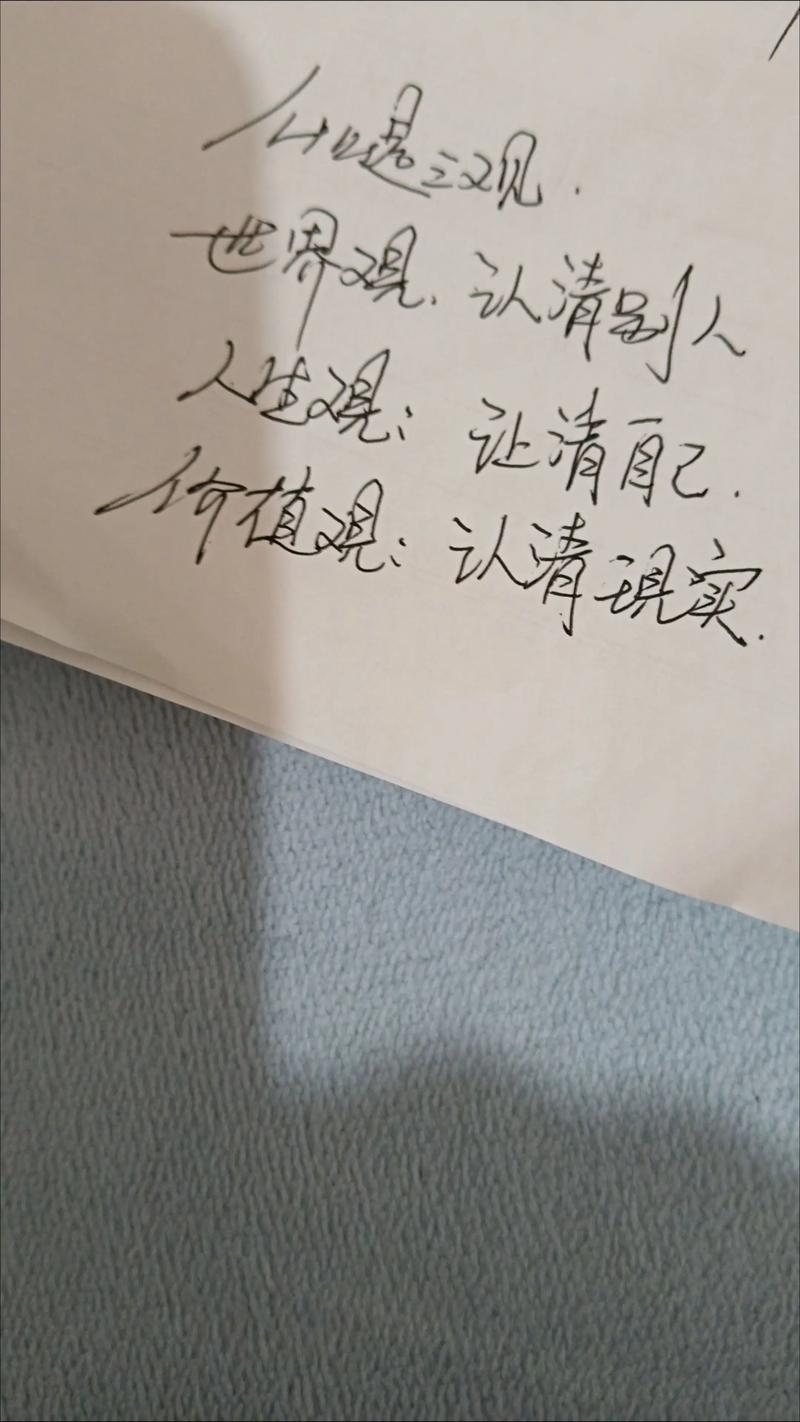 什么是三观.
世界观. 认清别人
人生观: 让清自己.
价值观: 认清现实.